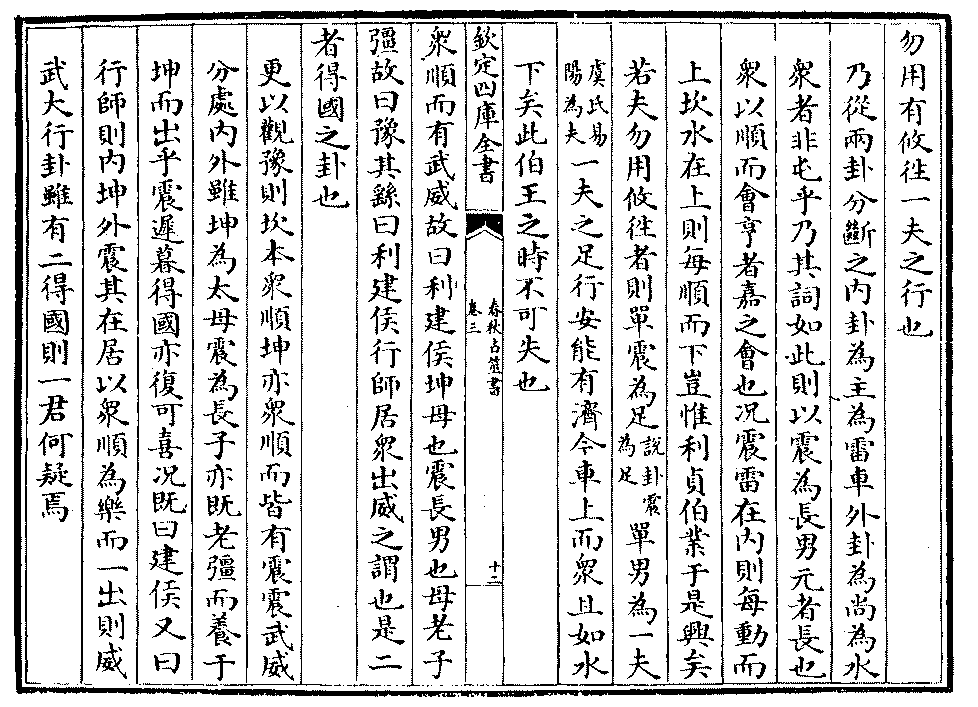 勿用有攸徃一夫之行也
乃從兩卦分斷之内卦為主為雷車外卦為尚為水
衆者非屯乎乃其詞如此則以震為長男元者長也
衆以順而會亨者嘉之會也况震雷在内則每動而
上坎水在上則每順而下豈惟利貞伯業于是興矣
若夫勿用攸徃者則單震為足說卦震為足單男為一夫
虞氏易陽為夫一夫之足行安能有濟今車上而衆且如水
下矣此伯王之時不可失也
欽定四庫全書
春秋占筮書
卷三
十二
衆順而有武威故曰利建侯坤母也震長男也母老子
彊故曰豫其繇曰利建侯行師居衆出威之謂也是二
者得國之卦也
更以觀豫則坎本衆順坤亦衆順而皆有震震武威
分處内外雖坤為太母震為長子亦既老彊而養于
坤而出乎震遲暮得國亦復可喜况既曰建侯又曰
行師則内坤外震其在居以衆順為樂而一出則威
武大行卦雖有二得國則一君何疑焉